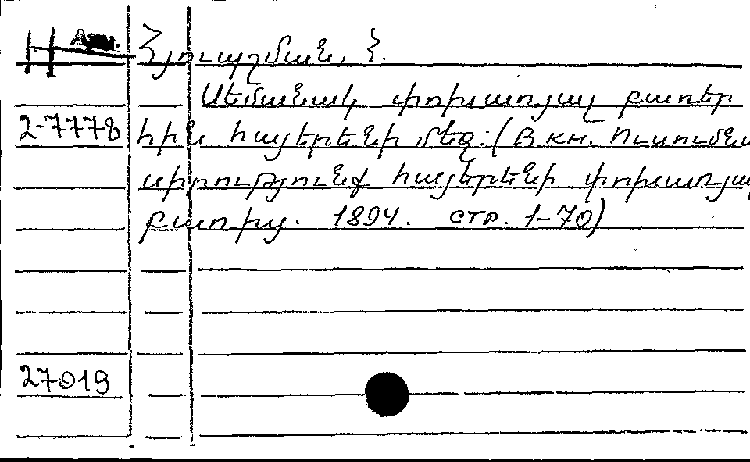 Арм. Հյուպշման, Հ.
Սեմական փոխառյալ բառեր
2-7778 հին հայերենի մեջ: (В кн. Ուսումնա
սիրությունք հայերենի փոխառյալ
բառից. 1894. стр. 1-70)
27019